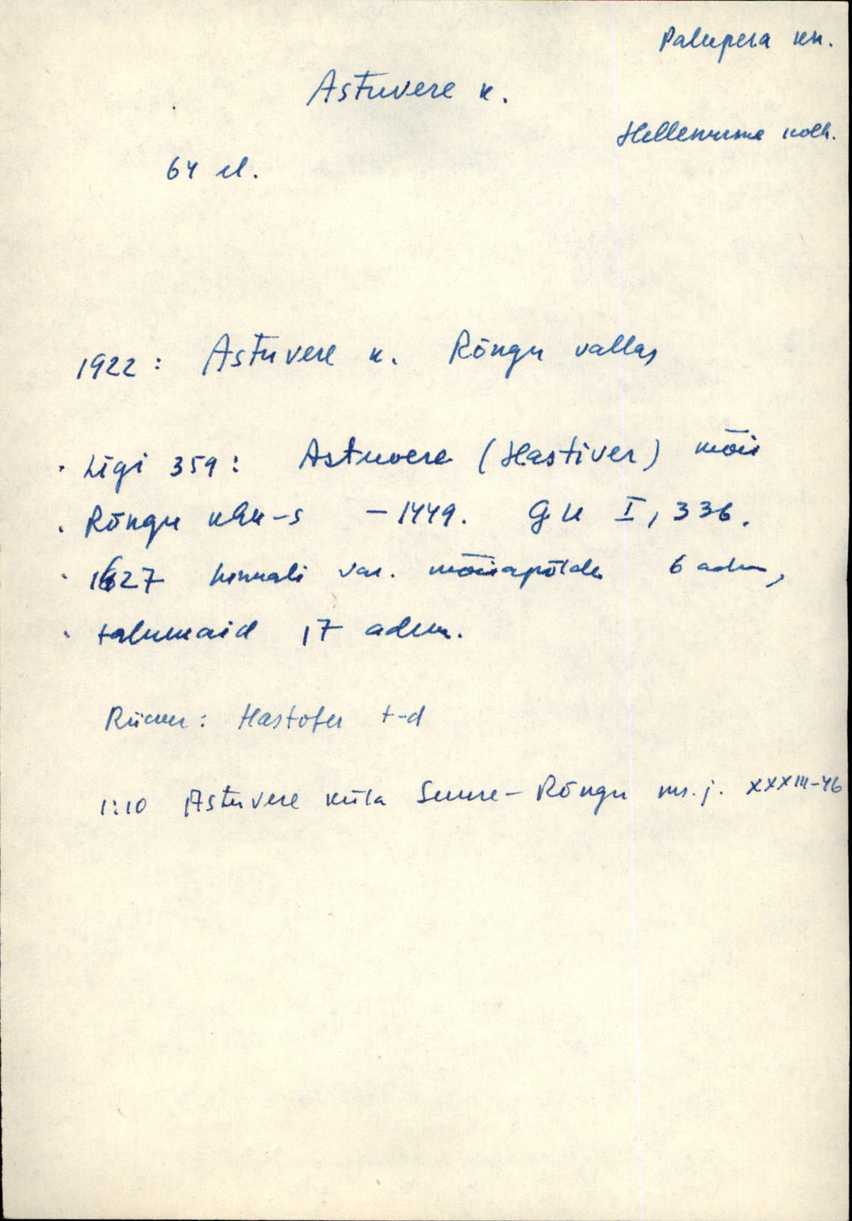 Palupera kn.
Astuvere k.
Hellenurme kolh.
64 el.
1922: Astuvere k. Rõngu vallas
Ligi 359: Astuvere (Hastiver) mõis
Rõngu khk-s - 1449. GU I, 336.
1627 hinnati var. mõisapõlde 6 adm,
talumaid 17 adm.
Rücker: Hastofer t-d
1:10 Astuvere küla Suure-Rõngu ms. j. XXXIII-46